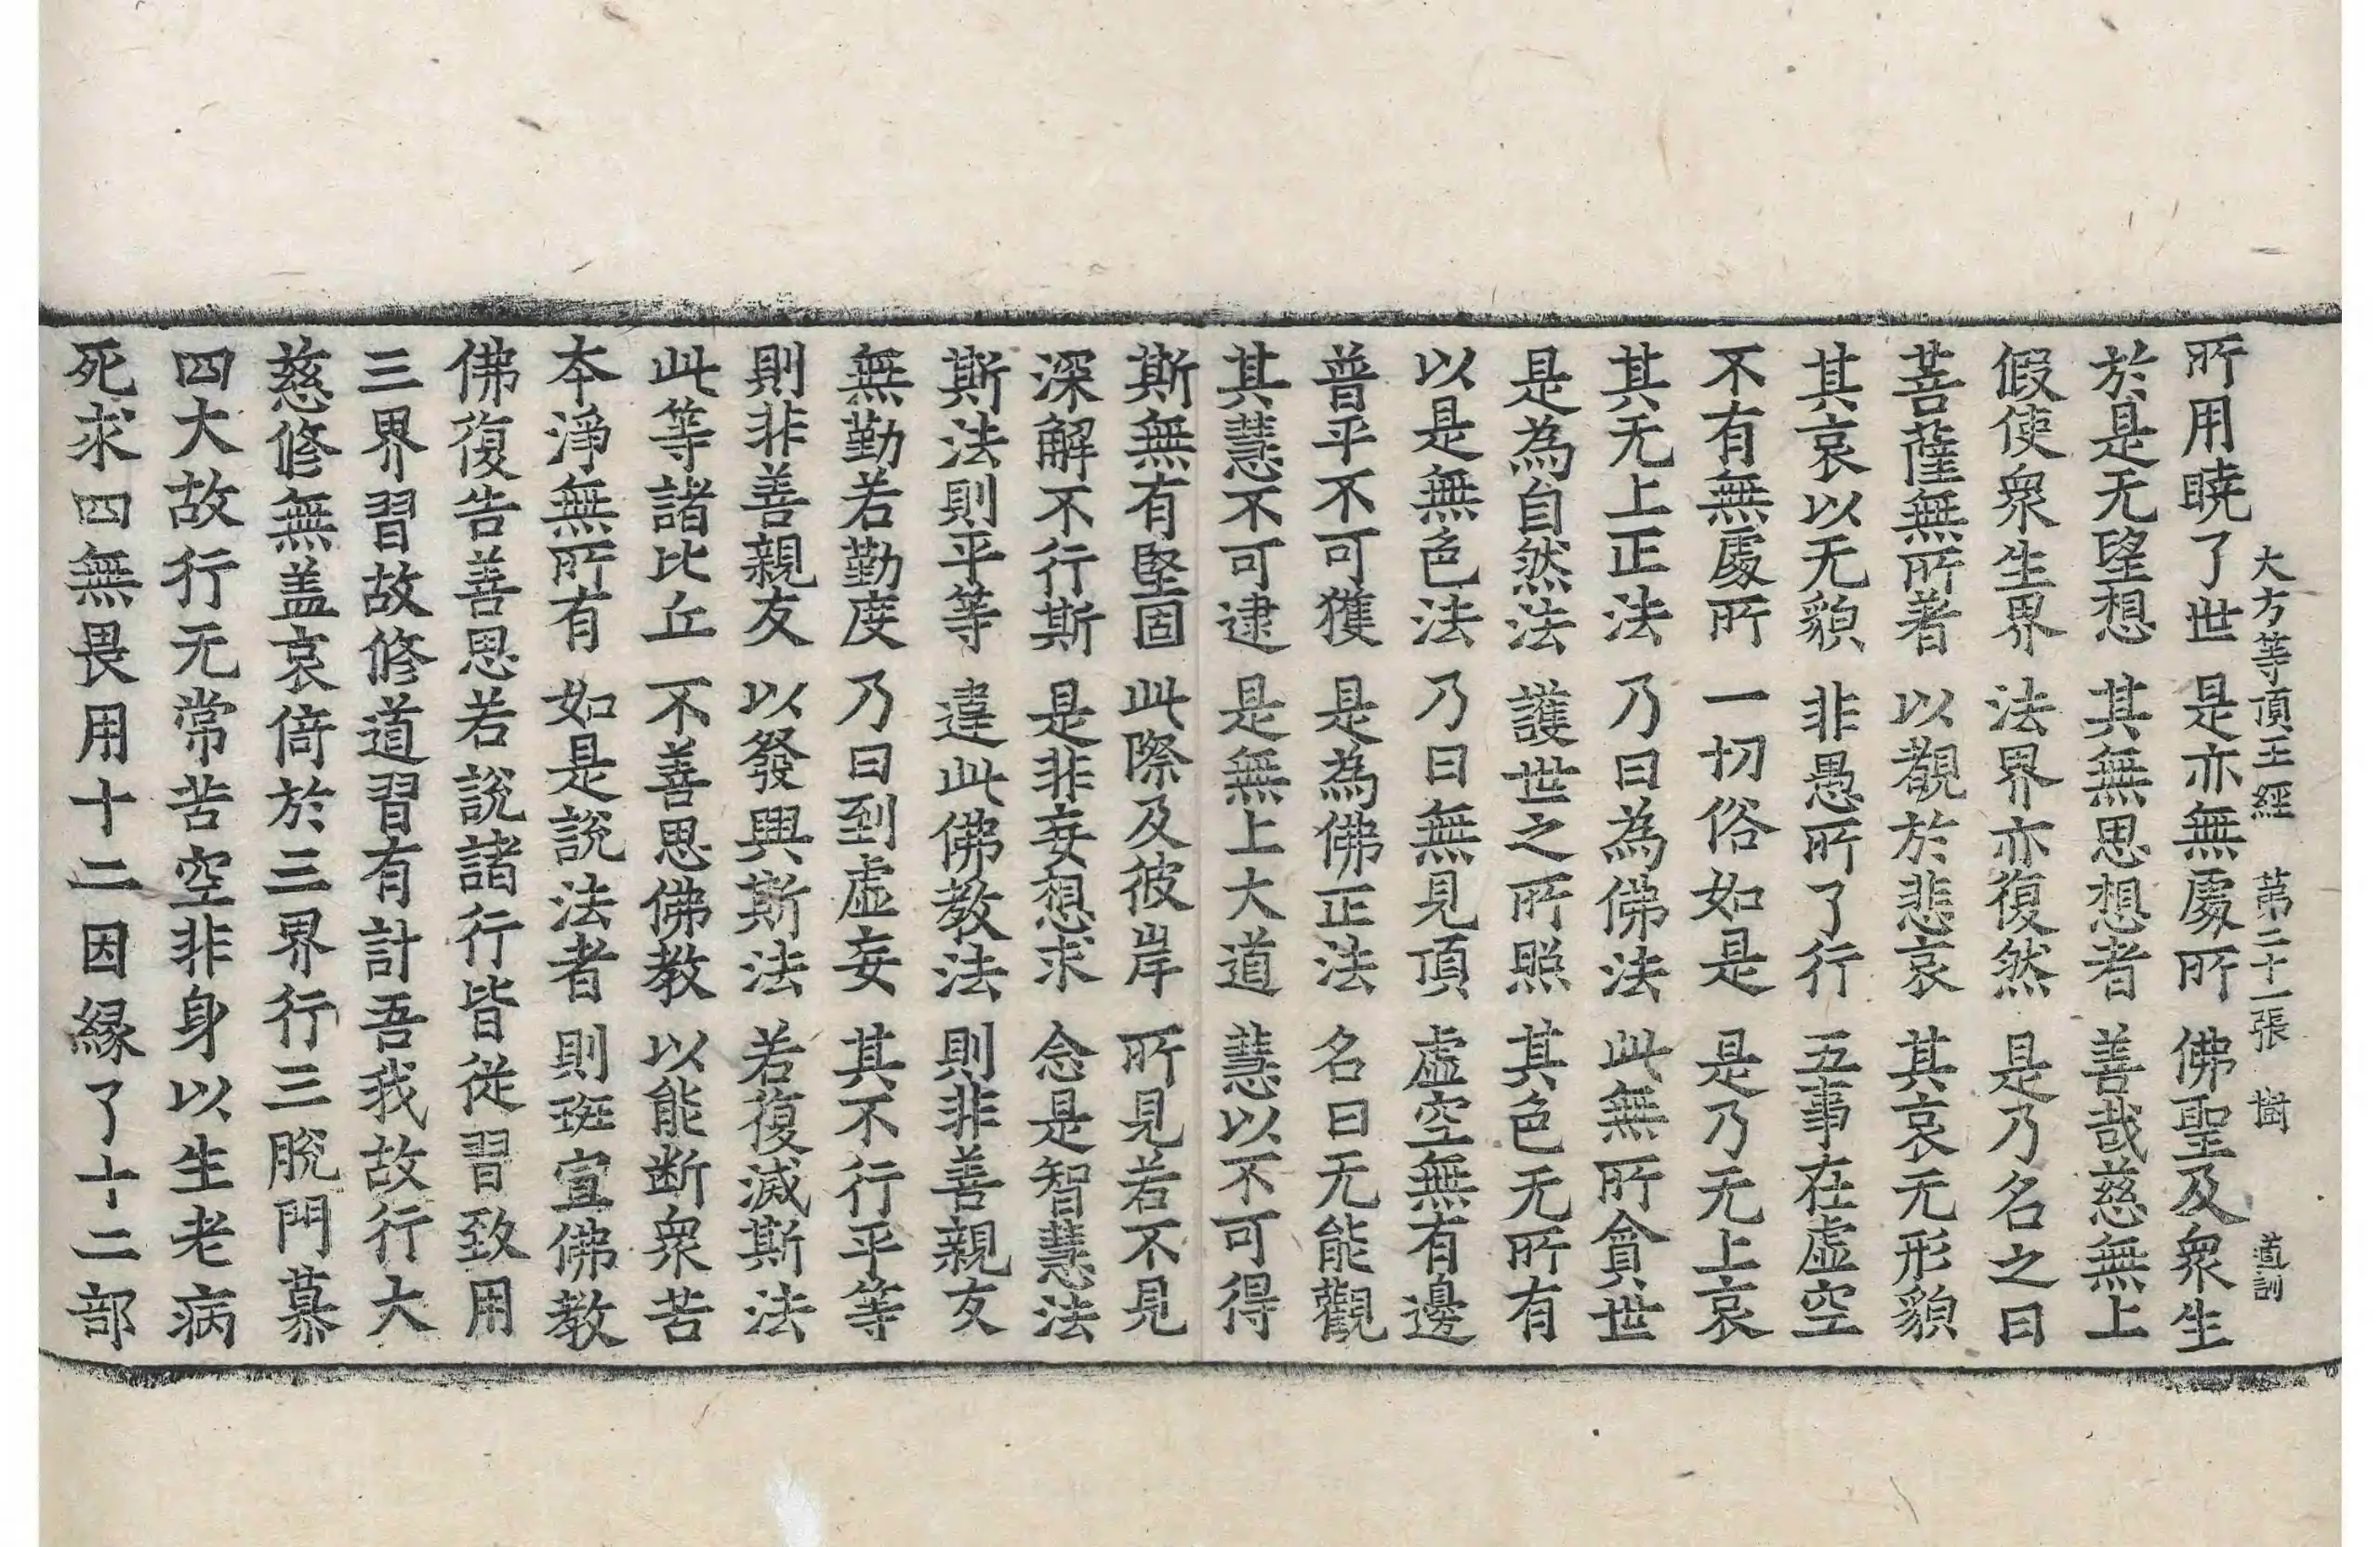 大方等頂王經 第二十一張 樹 道訓
所用曉了世 是亦無處所 佛聖及衆生
於是无望想 其無思想者 善哉慈無上
假使衆生界 法界亦復然 是乃名之曰
菩薩無所著 以觀於悲哀 其哀无形貌
其哀以无貌 非愚所了行 五事在虛空
不有無處所 一切俗如是 是乃无上哀
其无上正法 乃曰為佛法 此無所貪世
是為自然法 護世之所照 其色无所有
以是無色法 乃曰無見頂 虛空無有邊
普乎不可獲 是為佛正法 名曰无能觀
其慧不可逮 是無上大道 慧以不可得
斯無有堅固 此際及彼岸 所見若不見
深解不行斯 是非妄想求 念是智慧法
斯法則平等 違此佛教法 則非善親友
無勤若勤度 乃曰到虛妄 其不行平等
則非善親友 以發興斯法 若復滅斯法
此等諸比丘 不善思佛教 以能断衆苦
本淨無所有 如是說法者 則班宣佛教
佛復告善思若說諸行皆從習致用
三界習故修道習有計吾我故行大
慈修無盖哀倚於三界行三脫門慕
四大故行无常苦空非身以生老病
死求四無畏用十二因緣了十二部